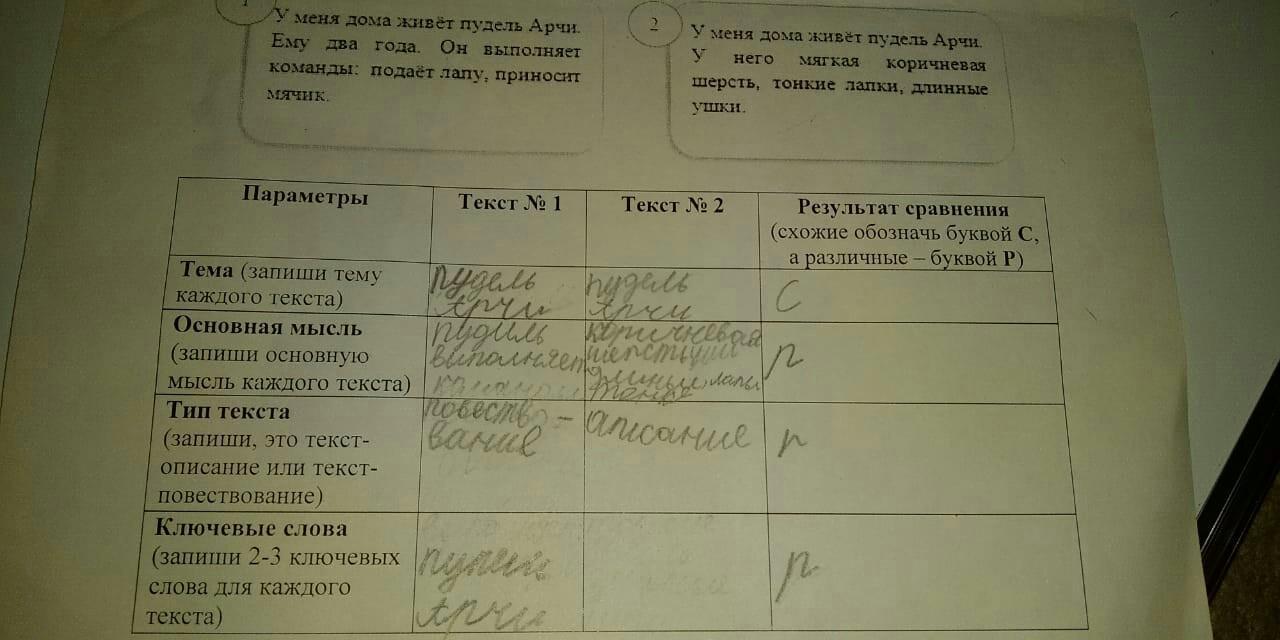 У меня дома живёт пудель Арчи.
Ему два года. Он выполняет
команды: подаёт лапу, приносит
мячик.
2
У меня дома живёт пудель Арчи.
У него мягкая коричневая
шерсть, тонкие лапки, длинные
ушки.
Параметры
Текст № 1
Текст № 2
Результат сравнения
(схожие обозначь буквой С,
а различные – буквой Р)
Тема (запиши тему
каждого текста)
пудель
Арчи
пудель
Арчи
С
Основная мысль
(запиши основную
мысль каждого текста)
пудиль
выполняет
коричневая
р
Тип текста
(запиши, это текст-
описание или текст-
повествование)
повество-
вание
аписание
р
Ключевые слова
(запиши 2-3 ключевых
слова для каждого
текста)
Арчи
р